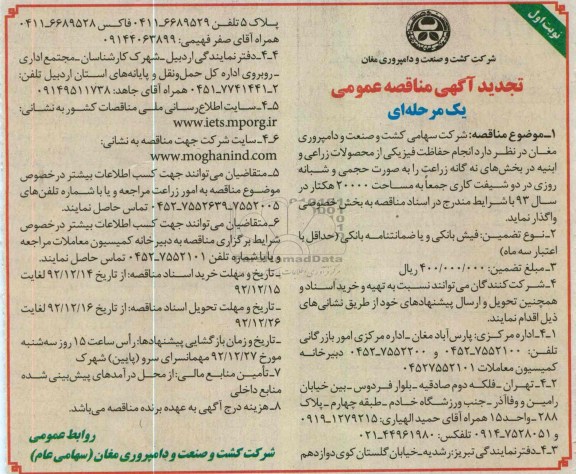 نوبت اول
شرکت کشت و صنعت و دامپروری مغان
تجدید آگهی مناقصه عمومی
یک مرحله‌ای
۱ـ موضوع مناقصه: شرکت سهامی کشت و صنعت و دامپروری
مغان در نظر دارد انجام حفاظت فیزیکی از محصولات زراعی و
ابنیه در بخش‌های نه گانه زراعت را به صورت حجمی و شبانه
روزی در دو شیفت کاری جمعاً به مساحت ۲۰۰۰۰ هکتار در
سال ۹۳ با شرایط مندرج در اسناد مناقصه به بخش خصوصی
واگذار نماید.
۲ـ نوع تضمین: فیش بانکی و یا ضمانتنامه بانکی (حداقل با
اعتبار سه ماه)
۳ـ مبلغ تضمین: ۴۰۰/۰۰۰/۰۰۰ ریال
۴ـ شرکت کنندگان می‌توانند نسبت به تهیه و خرید اسناد و
همچنین تحویل و ارسال پیشنهادهای خود از طریق نشانی‌های
ذیل اقدام نمایند.
۴ـ۱ـ اداره مرکزی: پارس آباد مغان ـ اداره مرکزی امور بازرگانی
تلفن: ۷۵۵۲۱۰۰ـ۰۴۵۲ و ۷۵۵۲۲۰۰ـ۰۴۵۲ دبیرخانه
کمیسیون معاملات ۰۴۵۲۷۵۵۲۱۰۱
۴ـ۲ـ تهران ـ فلکه دوم صادقیه ـ بلوار فردوس ـ بین خیابان
رامین و وفاآذر ـ جنب ورزشگاه خادم ـ طبقه چهارم ـ پلاک
۲۸۸ـ واحد ۱۵ همراه آقای حمید الهیاری: ۱۲۷۹۲۱۵ـ۰۹۱۹
و ۷۵۲۸۰۵۱ـ۰۹۱۴ تلفکس: ۴۴۹۶۱۹۸۰ـ۰۲۱
۴ـ۳ـ دفتر نمایندگی تبریز: رشدیه ـ خیابان گلستان کوی دوازدهم
پلاک ۵ تلفن ۶۶۸۹۵۲۹ـ۰۴۱۱ فاکس ۶۶۸۹۵۲۸ـ۰۴۱۱
همراه آقای صفر فهیمی: ۰۹۱۴۴۰۶۳۸۹۹
۴ـ۴ـ دفتر نمایندگی اردبیل ـ شهرک کارشناسان ـ مجتمع اداری
ـ روبروی اداره کل حمل‌ونقل و پایانه‌های استان اردبیل تلفن:
۲ـ۷۷۴۱۴۴۱ـ۰۴۵۱ همراه آقای جاهد: ۰۹۱۴۹۵۱۱۷۳۸
۴ـ۵ـ سایت اطلاع رسانی ملی مناقصات کشور به نشانی:
www.iets.mporg.ir
۴ـ۶ـ سایت شرکت جهت مناقصه به نشانی:
www.moghanind.com
۵ـ متقاضیان می‌توانند جهت کسب اطلاعات بیشتر در خصوص
موضوع مناقصه به امور زراعت مراجعه و یا با شماره تلفن‌های
۷۵۵۲۰۰۵ و ۷۵۵۲۶۳۹ـ۰۴۵۲ تماس حاصل نمایند.
۶ـ متقاضیان می‌توانند جهت کسب اطلاعات بیشتر در خصوص
شرایط برگزاری مناقصه به دبیرخانه کمیسیون معاملات مراجعه
و یا با شماره تلفن ۷۵۵۲۱۰۱ـ۰۴۵۲ تماس حاصل نمایند.
ـ تاریخ و مهلت خرید اسناد مناقصه: از تاریخ ۹۲/۱۲/۱۴ لغایت
۹۲/۱۲/۱۵
ـ تاریخ و مهلت تحویل اسناد مناقصه: از تاریخ ۹۲/۱۲/۱۶ لغایت
۹۲/۱۲/۲۶
ـ تاریخ و زمان بازگشایی پیشنهادها: رأس ساعت ۱۵ روز سه‌شنبه
مورخ ۹۲/۱۲/۲۷ مهمانسرای سرو (پایین) شهرک
۷ـ تأمین منابع مالی: از محل درآمدهای پیش‌بینی شده
منابع داخلی
۸ـ هزینه درج آگهی به عهده برنده مناقصه می‌باشد.
روابط عمومی
شرکت کشت و صنعت و دامپروری مغان (سهامی عام)